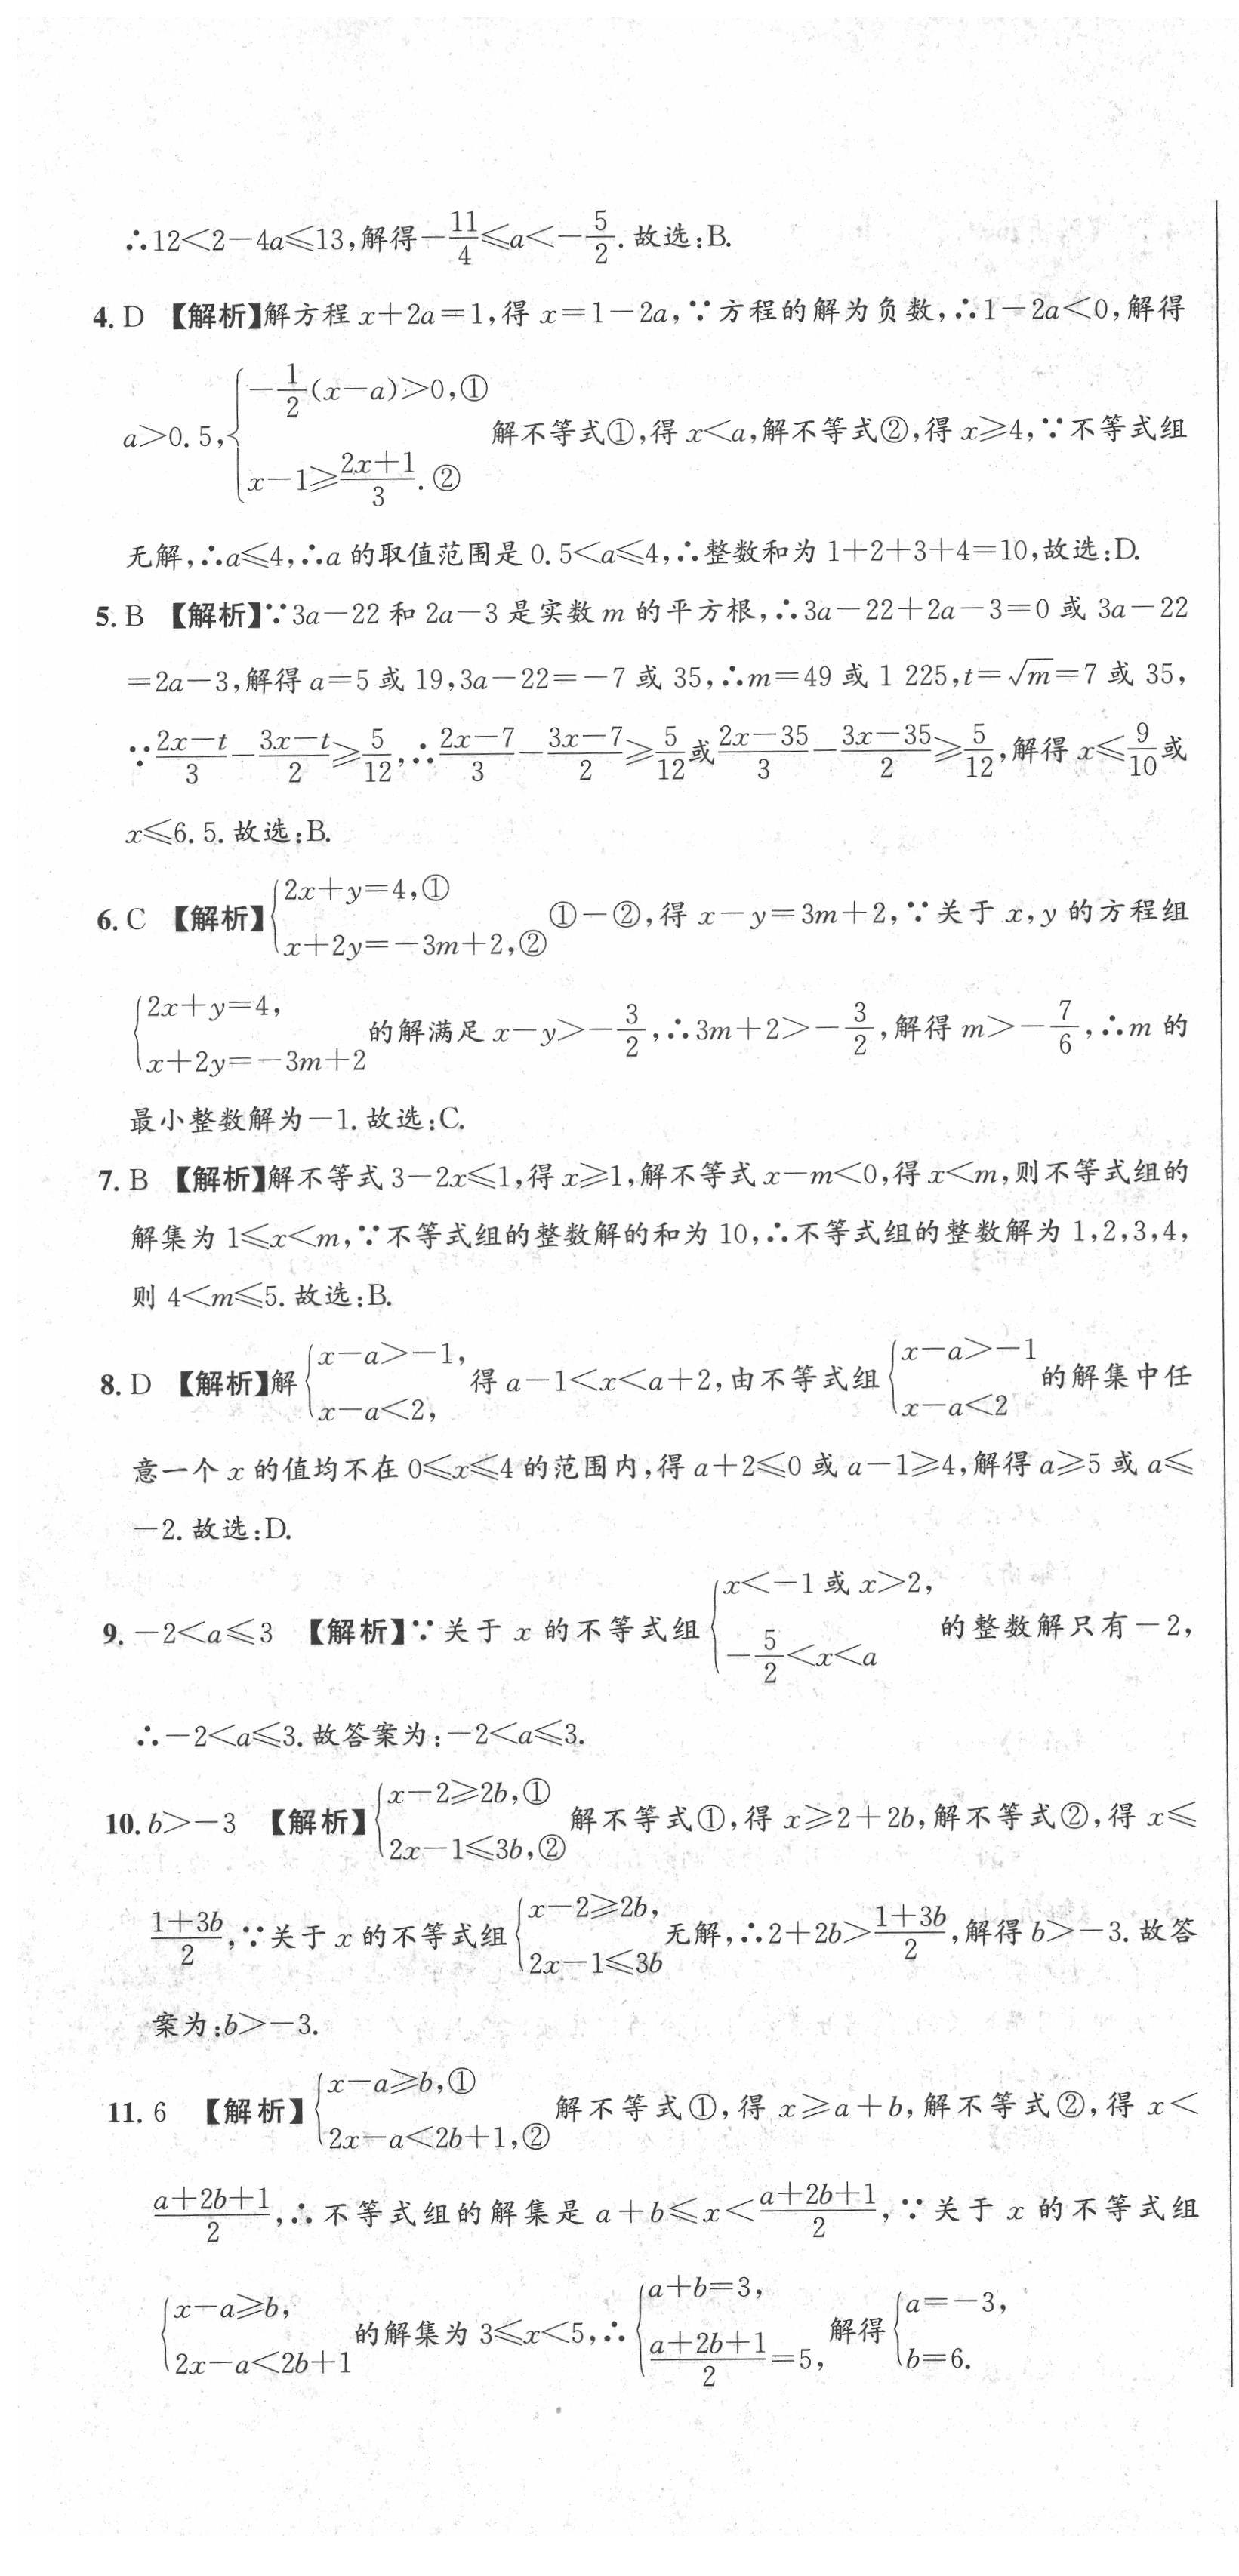 ∴12<2−4a≤13,解得−11/4≤a<−5/2.故选:B.
4. D 【解析】解方程 x+2a=1,得 x=1−2a,∵方程的解为负数,∴1−2a<0,解得
a>0.5,{−1/2(x−a)>0,① x−1≥(2x+1)/3.② 解不等式①,得 x<a,解不等式②,得 x≥4,∵不等式组
无解,∴a≤4,∴a 的取值范围是 0.5<a≤4,∴整数和为 1+2+3+4=10,故选:D.
5. B 【解析】∵3a−22 和 2a−3 是实数 m 的平方根,∴3a−22+2a−3=0 或 3a−22
=2a−3,解得 a=5 或 19,3a−22=−7 或 35,∴m=49 或 1 225,t=√m=7 或 35,
∵(2x−t)/3−(3x−t)/2≥5/12,∴(2x−7)/3−(3x−7)/2≥5/12或(2x−35)/3−(3x−35)/2≥5/12,解得 x≤9/10或
x≤6.5.故选:B.
6. C 【解析】{2x+y=4,① x+2y=−3m+2,② ①−②,得 x−y=3m+2,∵关于 x,y 的方程组
{2x+y=4, x+2y=−3m+2 的解满足 x−y>−3/2,∴3m+2>−3/2,解得 m>−7/6,∴m 的
最小整数解为−1.故选:C.
7. B 【解析】解不等式 3−2x≤1,得 x≥1,解不等式 x−m<0,得 x<m,则不等式组的
解集为 1≤x<m,∵不等式组的整数解的和为 10,∴不等式组的整数解为 1,2,3,4,
则 4<m≤5.故选:B.
8. D 【解析】解{x−a>−1, x−a<2, 得 a−1<x<a+2,由不等式组{x−a>−1 x−a<2 的解集中任
意一个 x 的值均不在 0≤x≤4 的范围内,得 a+2≤0 或 a−1≥4,解得 a≥5 或 a≤
−2.故选:D.
9. −2<a≤3 【解析】∵关于 x 的不等式组{x<−1 或 x>2, −5/2<x<a 的整数解只有−2,
∴−2<a≤3.故答案为:−2<a≤3.
10. b>−3 【解析】{x−2≥2b,① 2x−1≤3b,② 解不等式①,得 x≥2+2b,解不等式②,得 x≤
(1+3b)/2,∵关于 x 的不等式组{x−2≥2b, 2x−1≤3b 无解,∴2+2b>(1+3b)/2,解得 b>−3.故答
案为:b>−3.
11. 6 【解析】{x−a≥b,① 2x−a<2b+1,② 解不等式①,得 x≥a+b,解不等式②,得 x<
(a+2b+1)/2,∴不等式组的解集是 a+b≤x<(a+2b+1)/2,∵关于 x 的不等式组
{x−a≥b, 2x−a<2b+1 的解集为 3≤x<5,∴{a+b=3, (a+2b+1)/2=5, 解得{a=−3, b=6.